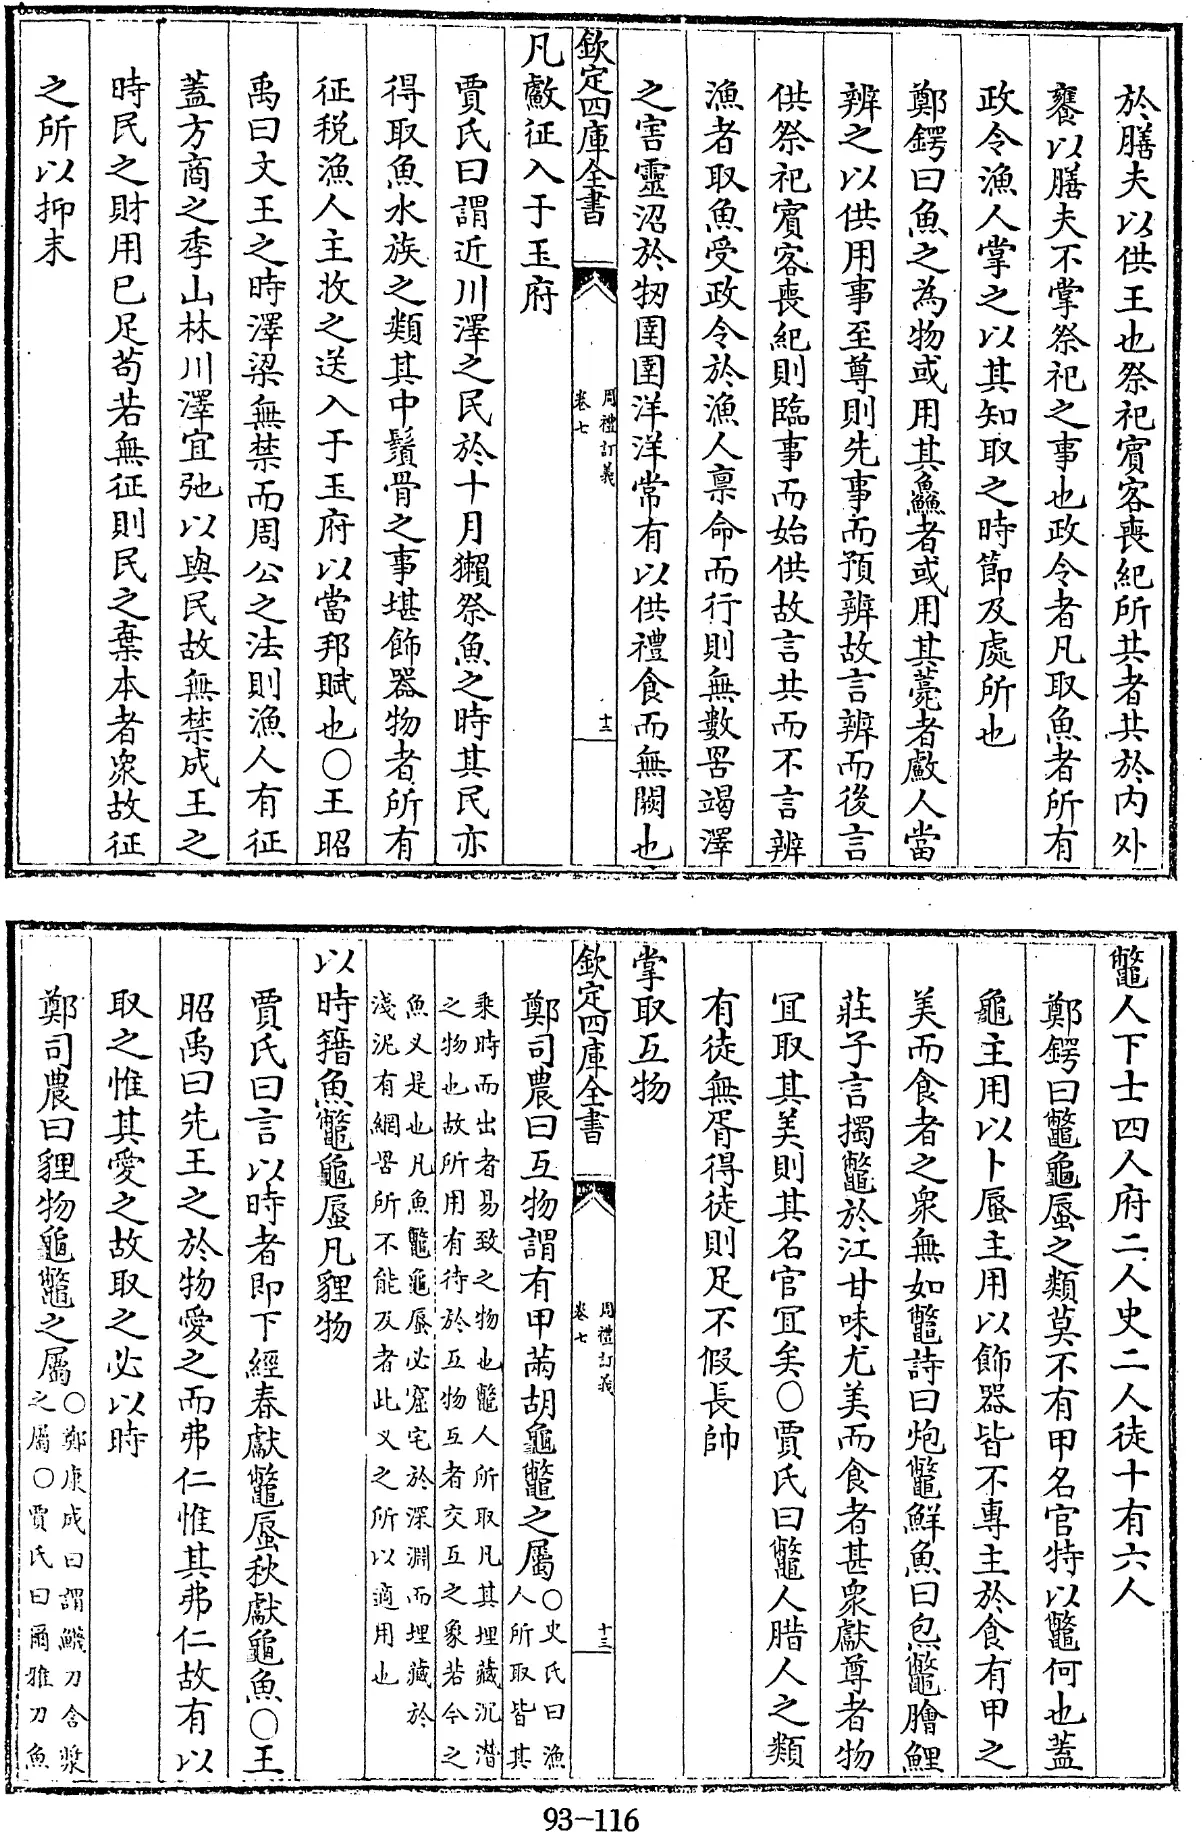 於膳夫以供王也祭祀賓客喪紀所共者共於内外
饔以膳夫不掌祭祀之事也政令者凡取魚者所有
政令漁人掌之以其知取之時節及處所也
鄭鍔曰魚之為物或用其鱻者或用其薧者䱷人當
辨之以供用事至尊則先事而預辨故言辨而後言
供祭祀賓客喪紀則臨事而始供故言共而不言辨
漁者取魚受政令於漁人禀命而行則無數罟竭澤
之害靈沼於牣圉圉洋洋常有以供禮食而無闕也
欽定四庫全書
周禮訂義
卷七
十二
凡䱷征入于玉府
賈氏曰謂近川澤之民於十月獺祭魚之時其民亦
得取魚水族之類其中鬚骨之事堪飾器物者所有
征税漁人主收之送入于玉府以當邦賦也○王昭
禹曰文王之時澤梁無禁而周公之法則漁人有征
蓋方商之季山林川澤宜弛以與民故無禁成王之
時民之財用已足苟若無征則民之棄本者衆故征
之所以抑末
鼈人下士四人府二人史二人徒十有六人
鄭鍔曰鼈龜蜃之類莫不有甲名官特以鼈何也蓋
龜主用以卜蜃主用以飾器皆不專主於食有甲之
美而食者之衆無如鼈詩曰炰鼈鮮魚曰炰鼈膾鯉
莊子言擉鼈於江甘味尤美而食者甚衆獻尊者物
宜取其美則其名官宜矣○賈氏曰鼈人腊人之類
有徒無胥得徒則足不假長帥
掌取互物
欽定四庫全書
周禮訂義
卷七
十三
鄭司農曰互物謂有甲䓣胡龜鼈之屬○史氏曰漁
人所取皆其
乘時而出者易致之物也鼈人所取凡其埋藏沉潛
之物也故所用有待於互物互者交互之象若今之
魚义是也凡魚鼈龜蜃必窟宅於深淵而埋藏於
淺泥有網罟所不能及者此义之所以適用也
以時籍魚鼈龜蜃凡貍物
賈氏曰言以時者即下經春獻鼈蜃秋獻龜魚○王
昭禹曰先王之於物愛之而弗仁惟其弗仁故有以
取之惟其愛之故取之必以時
鄭司農曰貍物龜鼈之屬○鄭康成曰謂鱴刀含漿
之屬○賈氏曰爾雅刀魚
93-116